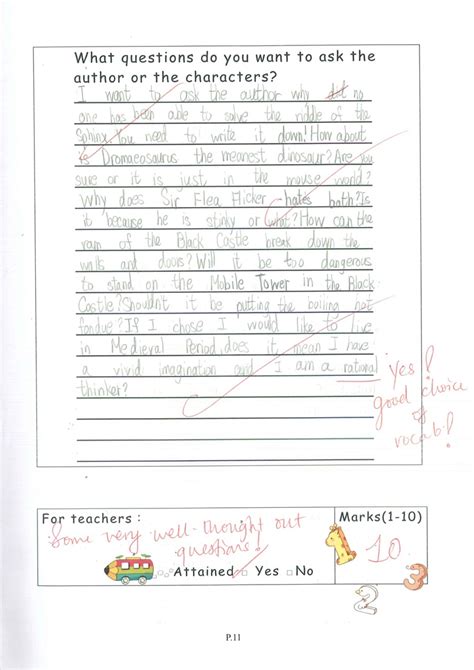 What questions do you want to ask the
author or the characters?
I want to ask the author why no
one has been able to solve the riddle of the
Sphinx. You need to write it down! How about
is Dromaeosaurus the meanest dinosaur? Are you
sure or it is just in the mouse world?
Why does Sir Flea Flicker hates bath? Is
it because he is stinky or what? How can the
ram of the Black Castle break down the
walls and doors? Will it be too dangerous
to stand on the Mobile Tower in the Black
Castle? Shouldn't it be putting the boiling hot
fondue? If I chose I would like to live
in Medieval Period, does it mean I have
a vivid imagination and I am a rational
thinker?
yes!
good choice
of
vocab!
For teachers :
Some very well-thought out
questions!
Attained Yes No
Marks(1-10)
10
2 3
P.11